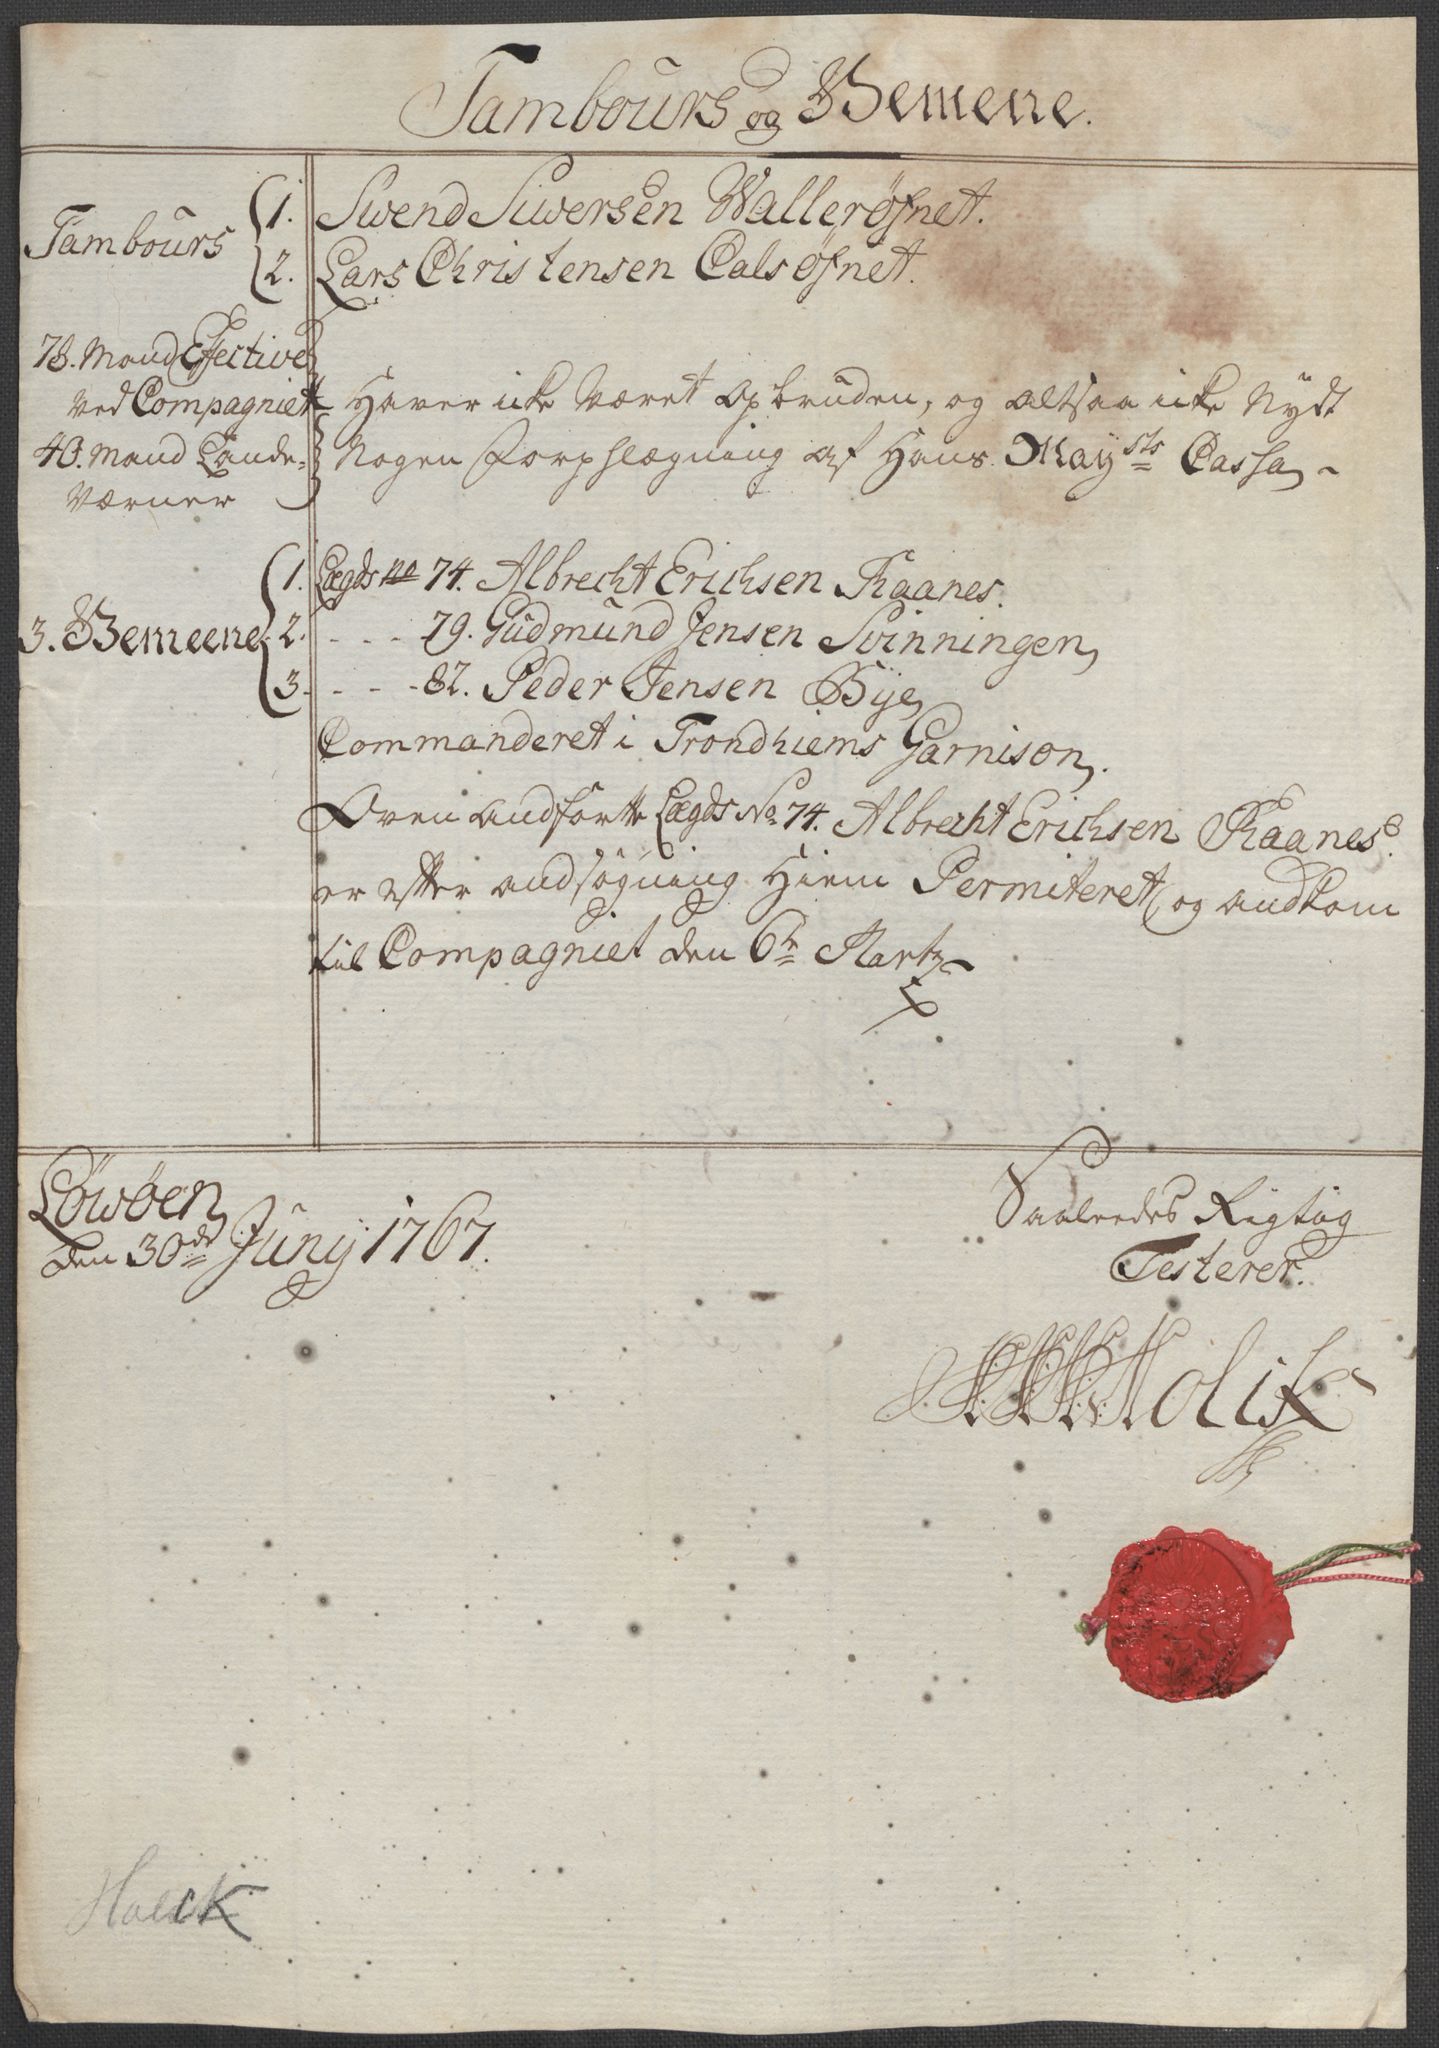 Tambours og Gemeene.
Tambours
1. Swend Siwersen Wallerøfnet.
2. Lars Christensen Calsøfnet.
78. Mand Efective
ved Compagniet
40. Mand Lande-
Værner
Haver icke været opbruden, og altsaa icke Nydt
Nogen Forpflægning af Hans Mayts Cassa
3. Gemeene
1. Lægds No 74. Albrecht Erichsen Raanes.
2. - - - 79. Gudmund Jensen Svinningen,
3. - - - - 82. Peder Jensen Bye,
Commanderet i Trondhiems Garnison,.
Oven andførte Lægds No 74. Albrecht Erichsen Raanes.
er efter andsøgning Hiem Permiteret, og andkom
til Compagniet den 6te Martz
Løwøen,
den 30de Junij 1767.
Saaleedes Rigtig
Testerer.
Holck